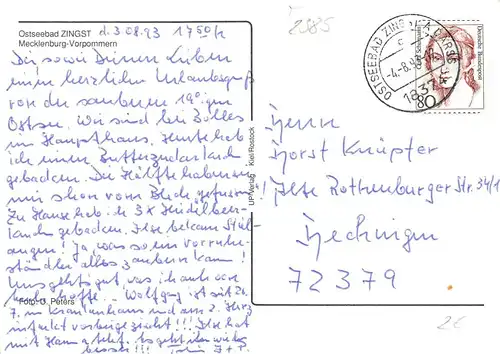 Ostseebad ZINGST
Mecklenburg-Vorpommern
d. 3.08.93 1750h
Dir sowie Deinen Lieben
einen herzlichen Urlaubsgruß
von der sauberen 19° igen
Ostsee. Wir sind bei
im Haupthaus. Heute hab
ich einen Butterzuckerkuchen
gebacken. Die Hälfte haben wir
schon vom Blech gefressen
Zu Hause hab ich 3x Heidelbeer-
kuchen gebacken. Ilse bekam Stiel-
augen! Ja, was so ein Vorruhe-
ständler alles zaubern kann!
Uns geht's gut, was ich auch von
hoffe. Wolfgang ist
7. im Krankenhaus und am 2. Herz
infarkt vorbeigerutscht!!! Ilse hat
mit
besser!!!
Foto: G. Peters
Kiel/Rostock
2885
OSTSEEBAD ZINGST
-4.-8.93
1837
Deutsche Bundespost
80
Herrn
Horst Knüpfer
Alte Rothenburger Str. 34/1
Hechingen
72379
2€